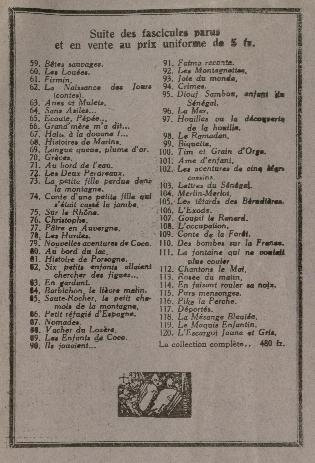 Suite des fascicules parus
et en vente au prix uniforme de 5 fr.
59. Bêtes sauvages.
60. Les Louées.
61. Firmin.
62. La Naissance des Jours
(contes).
63. Anes et Mulets.
64. Sans Asiles...
65. Ecoute, Pépée...
66. Grand'mère m'a dit...
67. Holà, à la douane !...
68. Histoires de Marins.
69. Longue queue, plume d'or.
70. Grèves.
71. Au bord de l'eau.
72. Les Deux Perdreaux.
73. La petite fille perdue dans
la montagne.
74. Conte d'une petite fille qui
s'était cassé la jambe.
75. Sur le Rhône.
76. Christophe.
77. Pâtre en Auvergne.
78. Les Hurdes.
79. Nouvelles aventures de Coco.
80. Au bord du lac.
81. Histoire de Porsogne.
82. Six petits enfants allaient
chercher des figues...
83. En gardant.
84. Barbichon, le lièvre malin.
85. Saute-Rocher, le petit cha-
mois de la montagne.
86. Petit réfugié d'Espagne.
87. Nomades.
88. Vacher du Lozère.
89. Les Enfants de Coco.
90. Ils jouaient...
91. Fatma raconte.
92. Les Montagnettes.
93. Joie du monde.
94. Crimes.
95. Diouf Sambou, enfant du
Sénégal.
96. La Mer.
97. Houilles ou la découverte
de la houille.
98. Le Ramadan.
99. Riquette.
100. Tim et Grain d'Orge.
101. Ame d'enfant.
102. Les aventures de cinq
103. Lettres du Sénégal.
104. Merlin-Merlot.
105. Les têtards des
106. L'Exode.
107. Goupil le Renard.
108. L'occupation.
109. Conte de la Forêt.
110. Des bombes sur la France.
111. La fontaine qui ne voulait
plus couler
112. Chantons le Mai,
113. Rosée du matin,
114. En faisant rouler sa noix.
115. Pers mensonges.
116. Pike la Perche.
117. Déportés.
118. La Mésange Bleutée.
119. Le Maquis Enfantin,
120. L'Escargot Jaune et Gris,
La collection complète.. 480 fr.